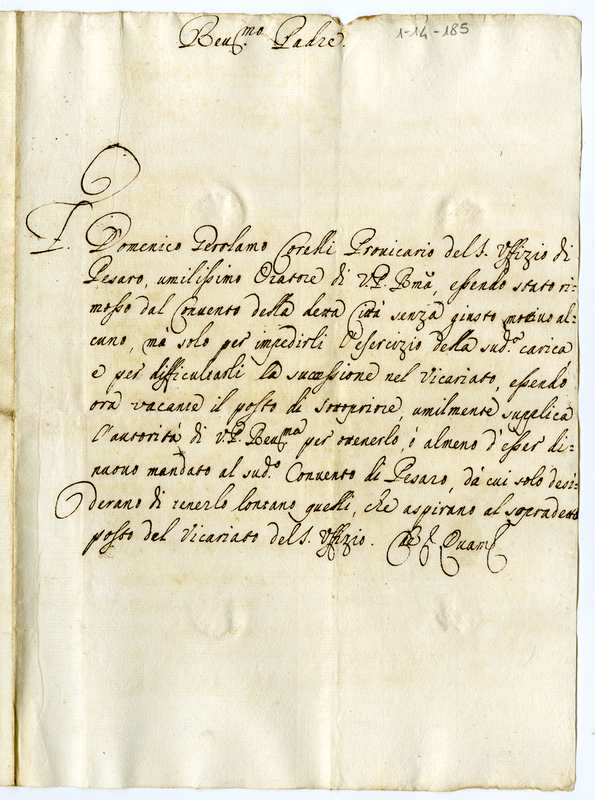 Reu.mo Padre.
1-14-185
F. Domenico Gerolamo Corelli Prouicario del S. Vffizio di
Pesaro, umilissimo Oratore di V.P. Rma, essendo stato ri=
mosso dal Conuento della detta Città senza giusto motiuo al=
cuno, mà solo per impedirli l'esercizio della sud.a carica
e per difficultarli la sucessione nel Vicariato, essendo
ora vacante il posto di Sottopriore, umilmente supplica
l'autorità di V.P. Reu.ma per ottenerlo, ò almeno d'esser di=
nuouo mandato al sud.o Conuento di Pesaro, dà cui solo desi=
derano di tenerlo lontano quelli, che aspirano al sopradetto
posto del Vicariato del S. Vffizio.